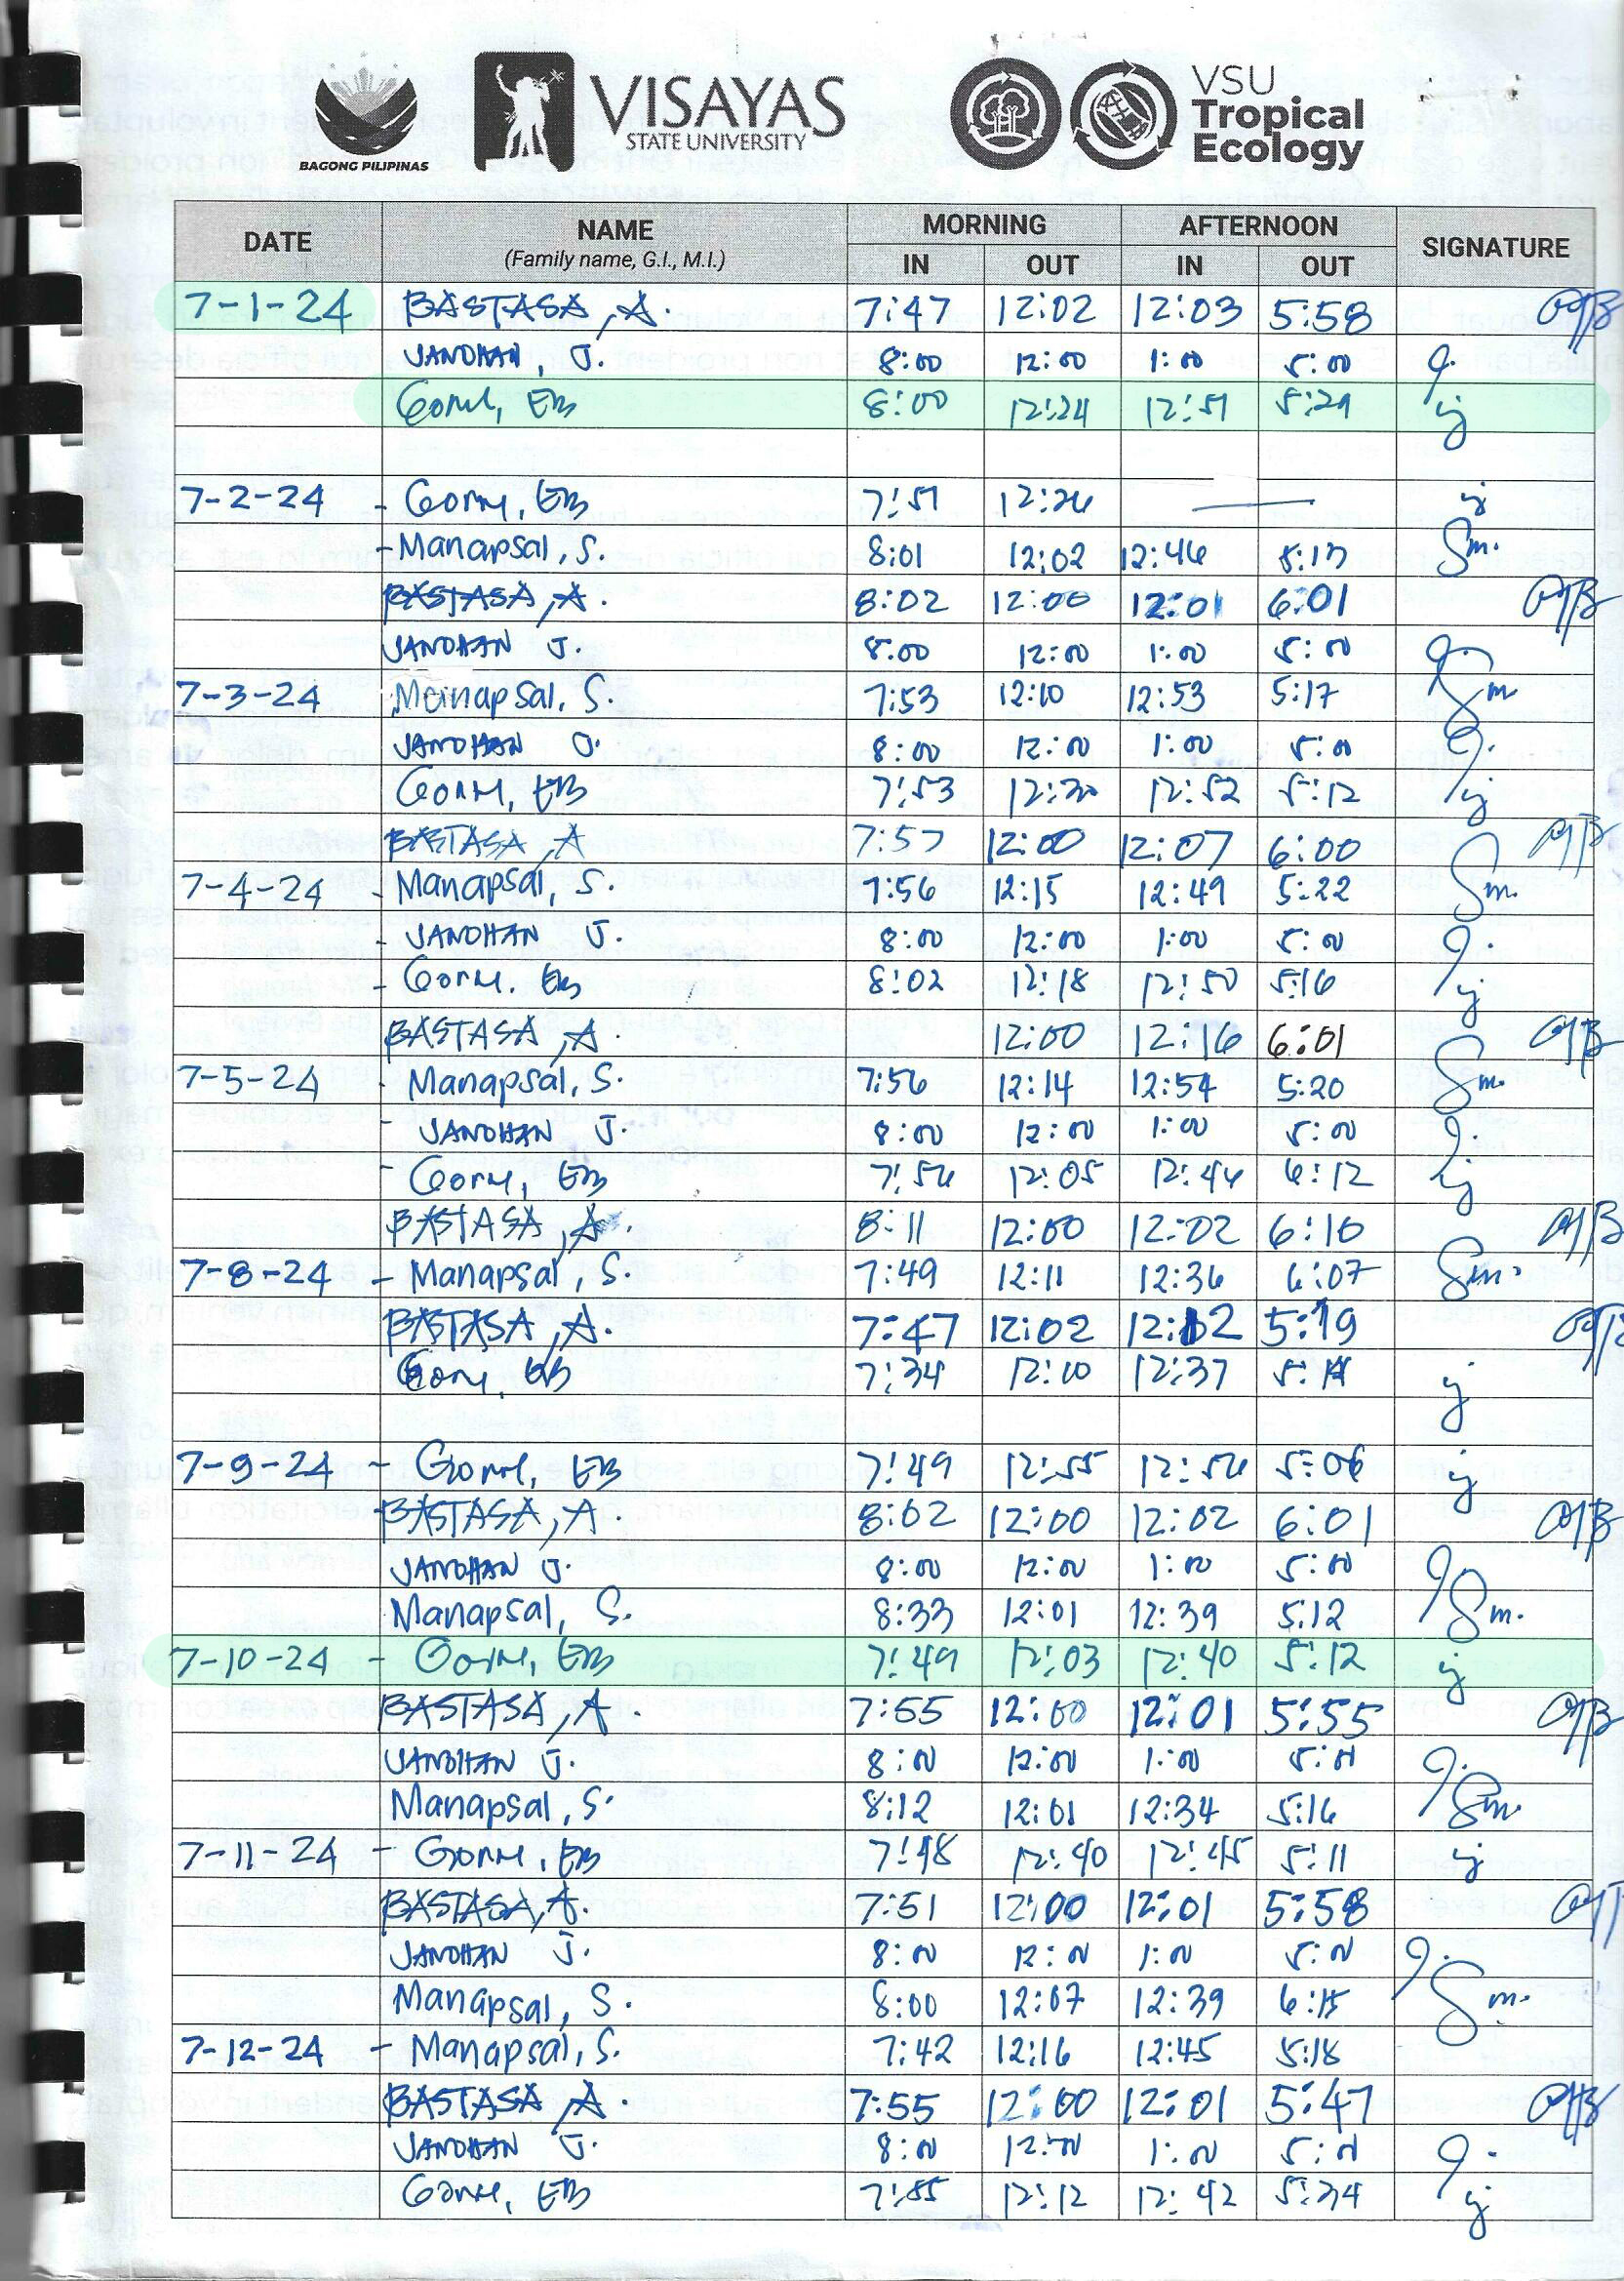 BAGONG PILIPINAS
VISAYAS
STATE UNIVERSITY
VSU
Tropical
Ecology
DATE NAME (Family name, G.I., M.I.) MORNING AFTERNOON SIGNATURE
IN OUT IN OUT
7-1-24 BASTASA, A. 7:47 12:02 12:03 5:58
JANDHAN, J. 8:00 12:00 1:00 5:00
EB 8:00 12:24 12:51 5:29
7-2-24 - EB 7:51 12:26
- Manapsal, S. 8:01 12:02 12:46 5:13 Sm.
BASTASA, A. 8:02 12:00 12:01 6:01
JANDHAN J. 8:00 12:00 1:00 5:00
7-3-24 Manapsal, S. 7:53 12:10 12:53 5:17 Sm
JANDHAN J. 8:00 12:00 1:00 5:00
EB 7:53 12:20 12:52 5:12
BASTASA, A 7:57 12:00 12:07 6:00
7-4-24 - Manapsal, S. 7:56 12:15 12:49 5:22 Sm.
- JANDHAN J. 8:00 12:00 1:00 5:00
- EB 8:02 12:18 12:50 5:16
BASTASA, A. 12:00 12:16 6:01
7-5-24 - Manapsal, S. 7:56 12:14 12:54 5:20 Sm.
- JANDHAN J. 8:00 12:00 1:00 5:00
- EB 7:56 12:05 12:46 6:12
BASTASA, A 8:11 12:00 12:02 6:10
7-8-24 - Manapsal, S. 7:49 12:11 12:36 6:07 Sm.
BASTASA, A. 7:47 12:02 12:12 5:19
EB 7:34 12:10 12:37
7-9-24 - EB 7:49 12:55 12:56 5:06
BASTASA, A 8:02 12:00 12:02 6:01
JANDHAN J. 8:00 12:00 1:00 5:00
Manapsal, S. 8:33 12:01 12:39 5:12 Sm.
7-10-24 - EB 7:49 12:03 12:40 5:12
BASTASA, A. 7:55 12:00 12:01 5:55
JANDHAN J. 8:00 12:00 1:00 5:00
Manapsal, S. 8:12 12:01 12:34 5:16 Sm.
7-11-24 - EB 7:48 12:40 12:45 5:11
BASTASA, A. 7:51 12:00 12:01 5:58
JANDHAN J. 8:00 12:00 1:00 5:00
Manapsal, S. 8:00 12:07 12:39 6:15 Sm.
7-12-24 - Manapsal, S. 7:42 12:16 12:45 5:18
BASTASA, A. 7:55 12:00 12:01 5:47
JANDHAN J. 8:00 12:00 1:00 5:00
EB 7:55 12:12 12:42 5:24